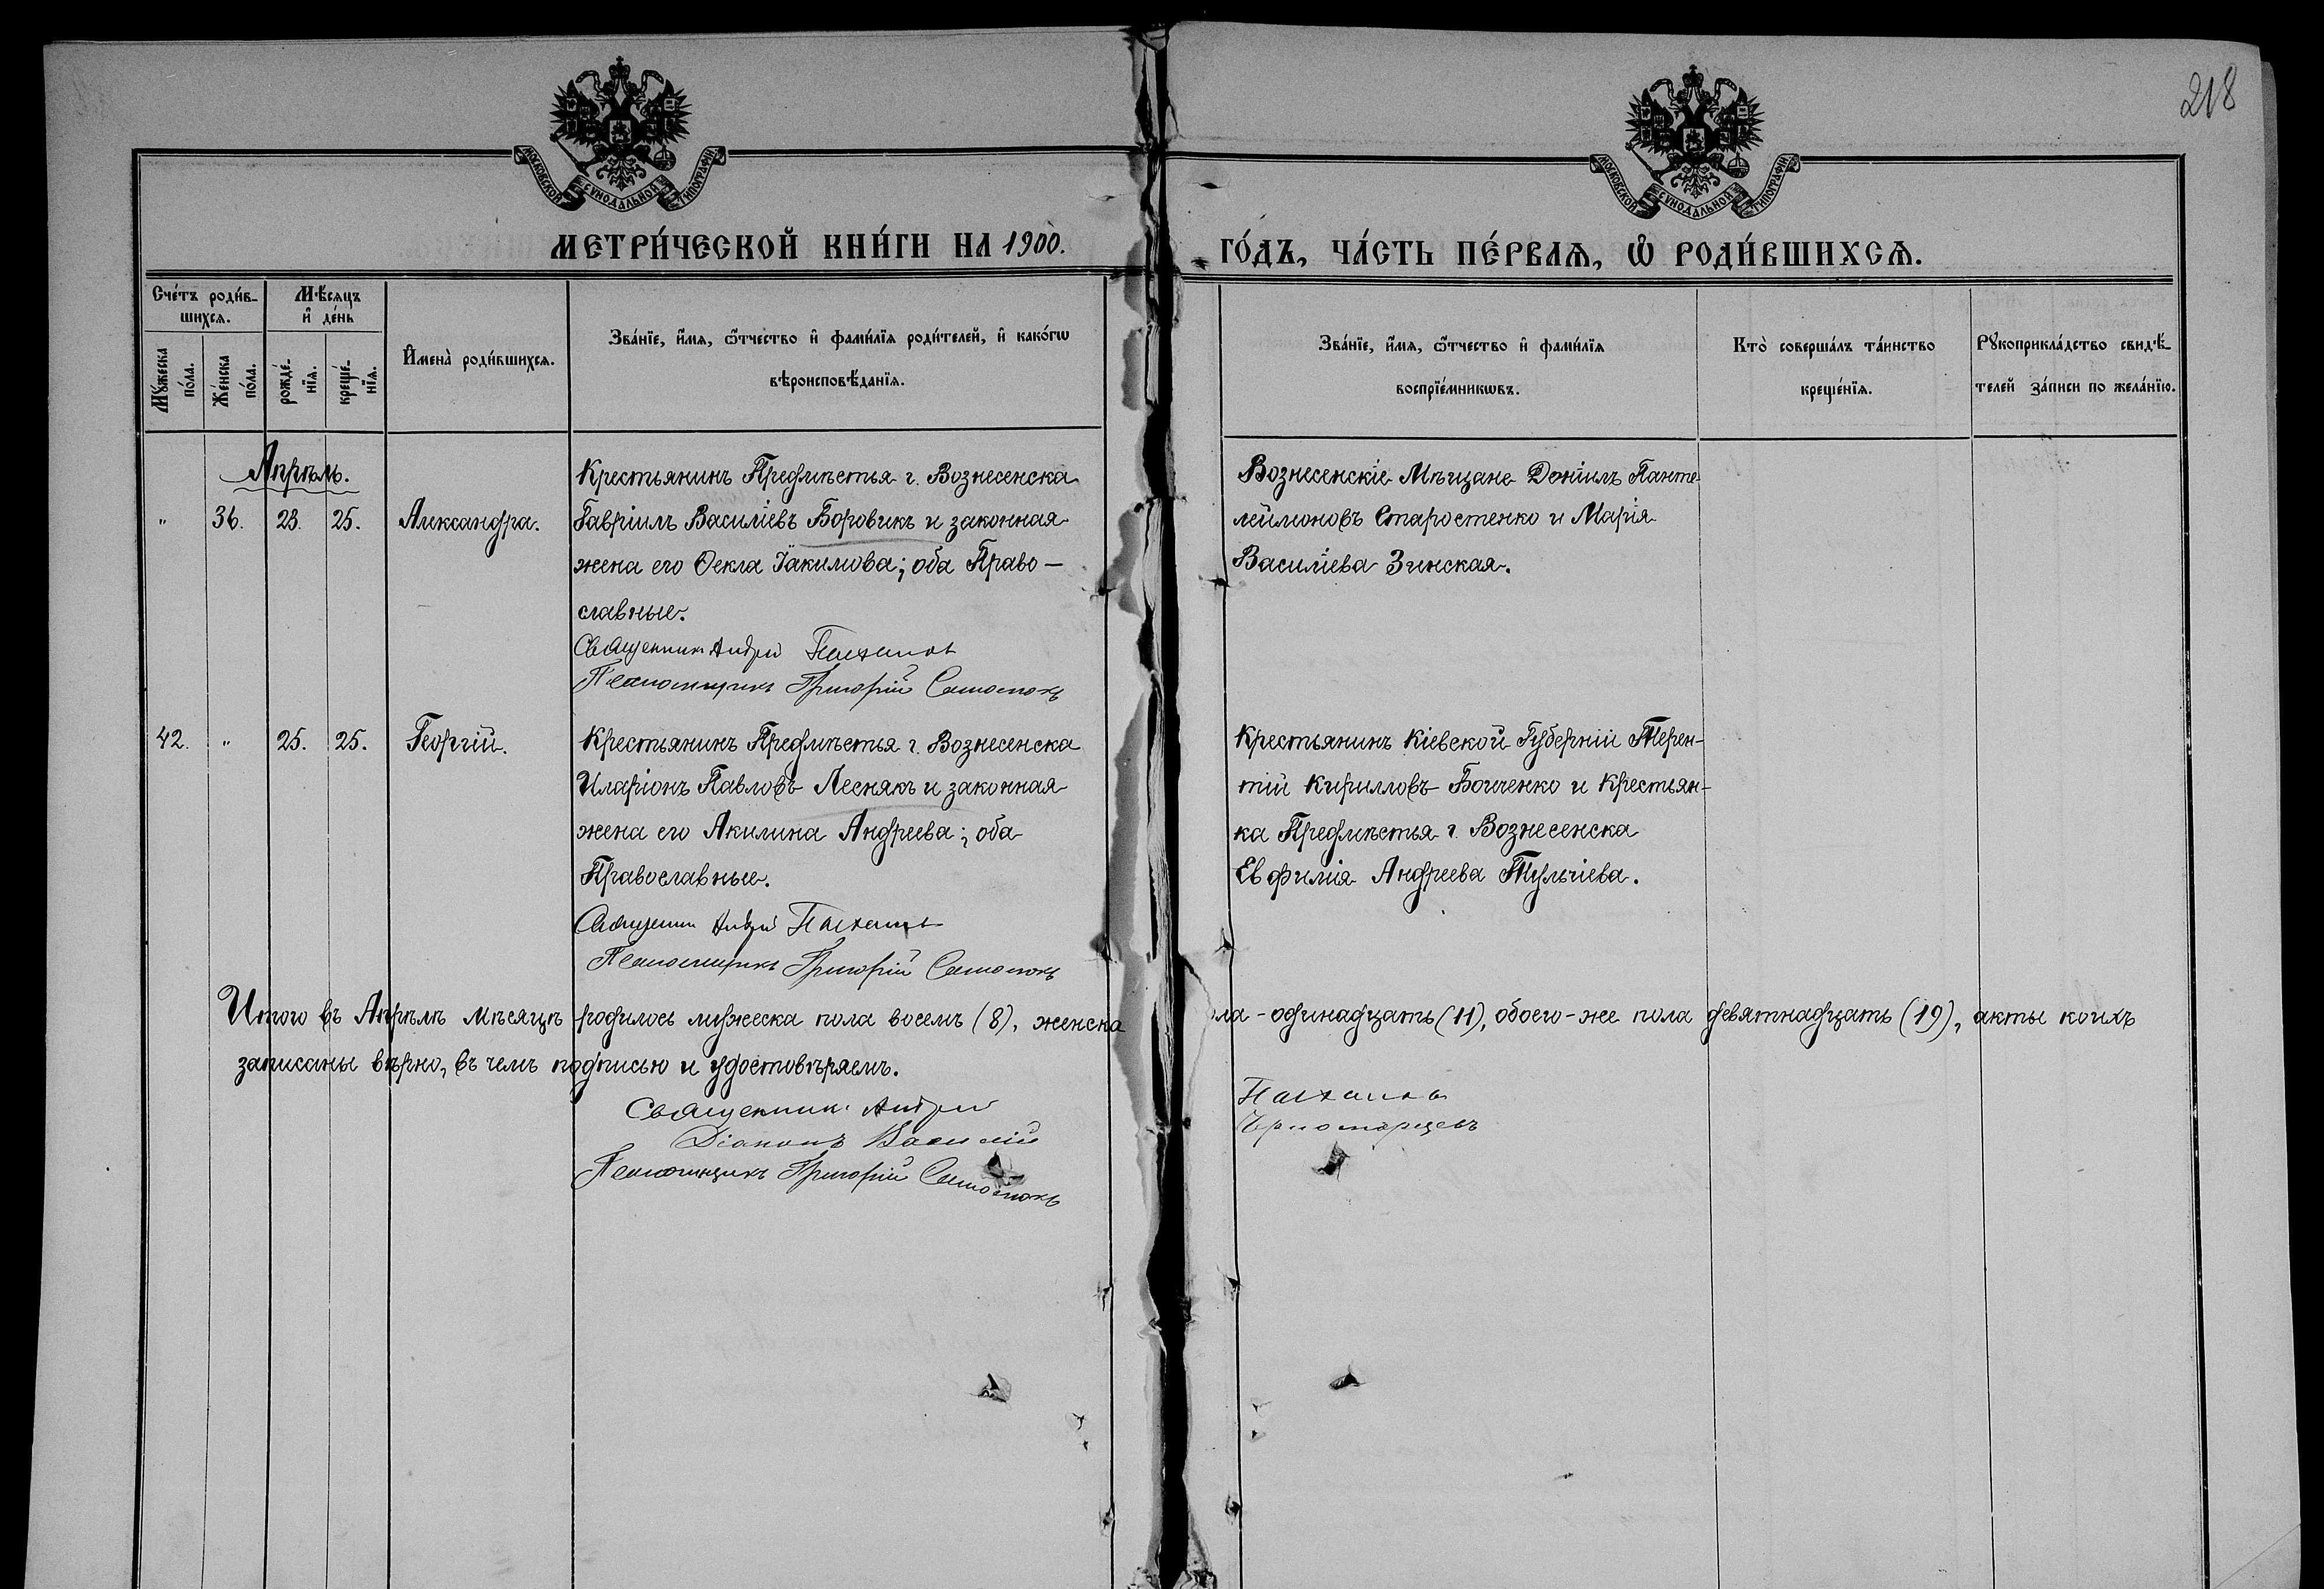 218
МОСКОВСКОЙ СѴНОДАЛЬНОЙ ТИПОГРАФІИ
МОСКОВСКОЙ СѴНОДАЛЬНОЙ ТИПОГРАФІИ
МЕТРИ́ЧЕСКОЙ КНИ́ГИ НА 1900.
ГО́ДЪ, ЧА́СТЬ ПЕ́РВАѦ, Ѡ РОДИ́ВШИХСѦ.
Сче́тъ роди́в-
шихсѧ.
Мѣ́сѧцъ
и҆ де́нь
Мꙋ́жеска
по́ла.
Же́нска
по́ла.
рожде́-
нїѧ.
креще́-
нїѧ.
И҆мена̀ роди́вшихсѧ.
Зва́нїе, и҆́мѧ, ѻ҆́тчество и҆ фами́лїѧ роди́телей, и҆ како́гѡ
вѣроисповѣ́данїѧ.
Зва́нїе, и҆́мѧ, ѻ҆́тчество и҆ фами́лїѧ
воспрїе́мникѡвъ.
Кто̀ соверша́лъ та́инство
креще́нїѧ.
Рꙋкоприкла́дство свидѣ́-
телей за́писи по жела́нїю.
Апрѣль.
" 36. 23. 25. Александра.
Крестьянинъ Предмѣстья г. Вознесенска
Гавріилъ Василіевъ Боровикъ и законная
жена его Ѳекла Іакимова; оба Право-
славные.
Священникъ Андрей
Псаломщикъ Григорій
Вознесенскіе Мѣщане Даніилъ Панте-
леимоновъ Старостенко и Марія
Василіева Зинская.
42. " 25. 25. Георгій.
Крестьянинъ Предмѣстья г. Вознесенска
Иларіонъ Павловъ Леснякъ и законная
жена его Акилина Андреева; оба
Православные.
Священник Андрей
Псаломщикъ Григорій
Крестьянинъ Кіевской Губерніи Терен-
тій Кирилловъ Бойченко и Крестьян-
ка Предмѣстья г. Вознесенска
Евфимія Андреева Тульчіева.
Итого въ Апрѣлѣ мѣсяцѣ родилось мужеска пола восемъ (8), женска ола - одинадцать (11), обоего-же пола девятнадцать (19), акты коихъ
записаны вѣрно, въ чемъ подписью и удостовѣряемъ.
Священник Андрей
Діаконъ Василій Черноморцевъ
Псаломщикъ Григорій